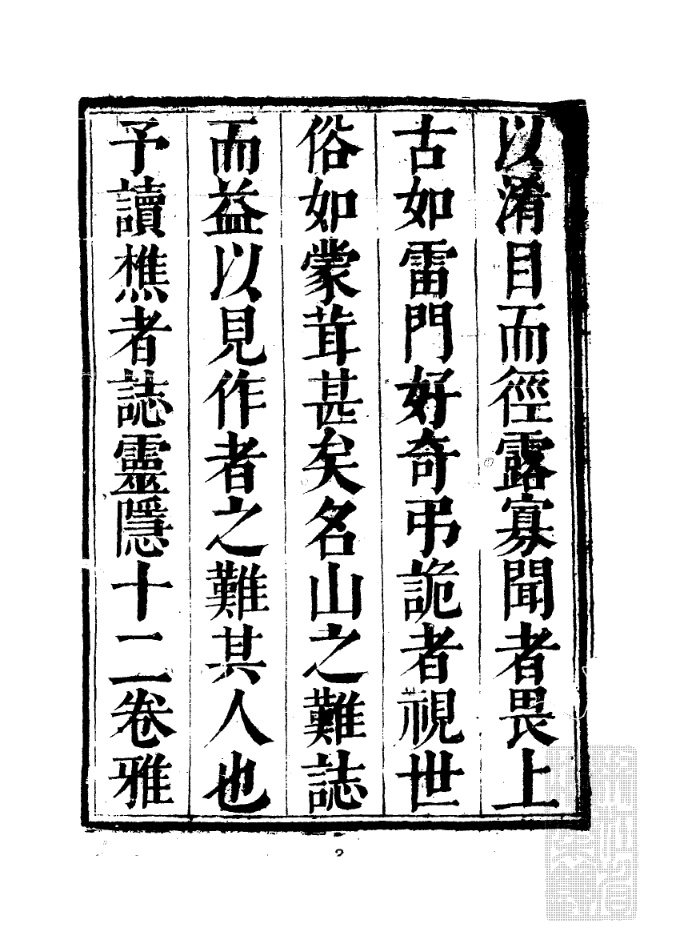 以淆目而徑露寡聞者畏上
古如雷門好奇弔詭者視世
俗如蒙茸甚矣名山之難誌
而益以見作者之難其人也
予讀樵者誌靈隱十二卷雅